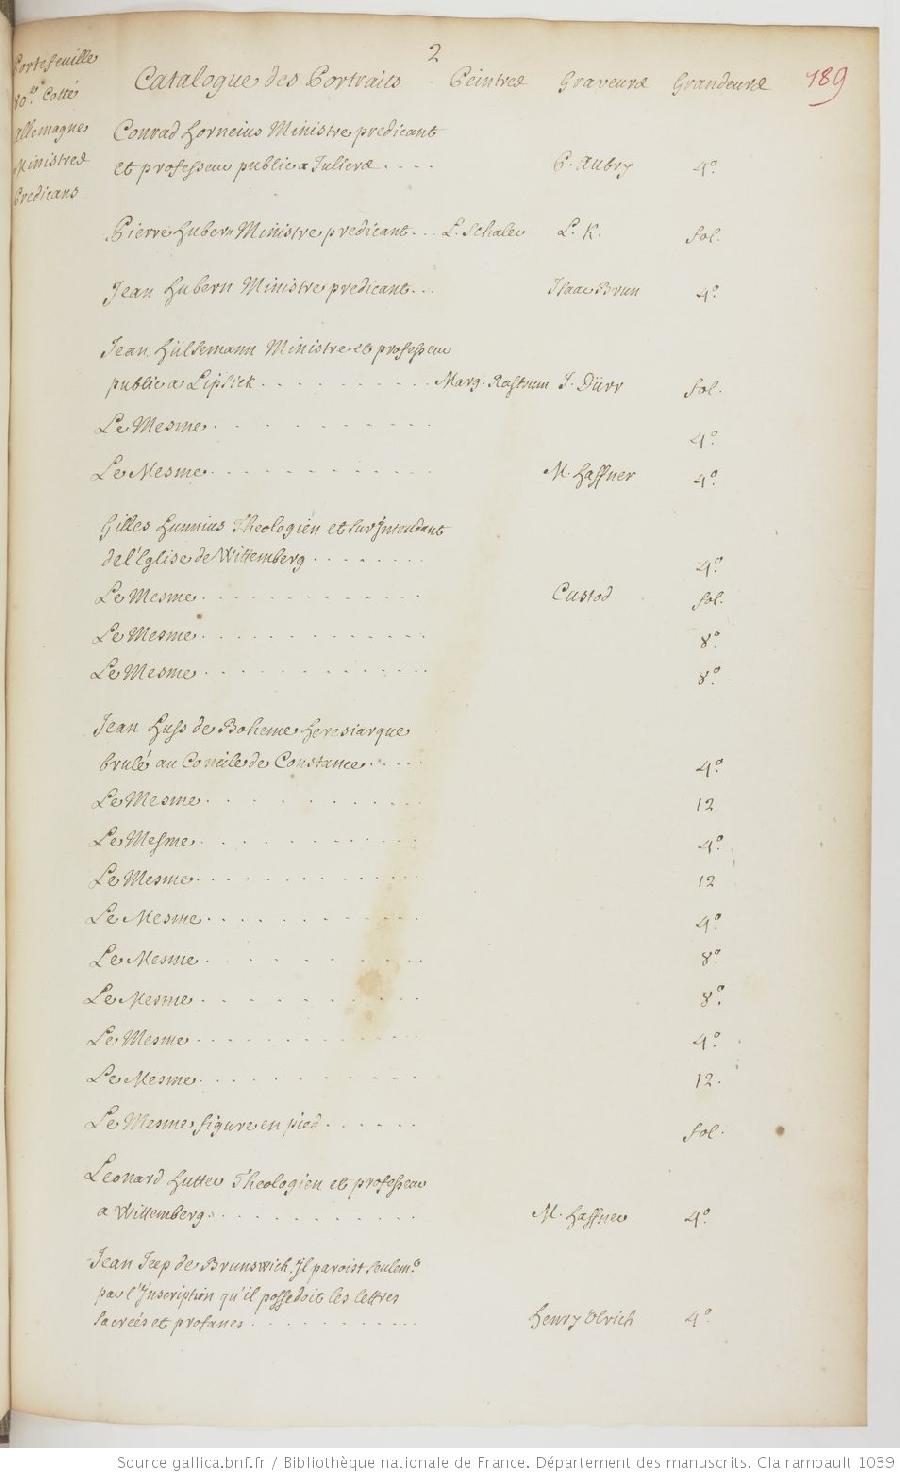 2
Portefeuille
80.er Cotté
Allemagne
Ministres
Predicans
Catalogue des Portraits Peintres Graveurs Grandeurs 189
Conrad Horneius Ministre predicant
et professeur public a Julieres.... P. Aubry 4º.
Pierre Hubern Ministre predicant... L. Schaler L. K. fol.
Jean Hubern Ministre predicant... Isaac Brun 4º.
Jean Hülsemann Ministre et professeur
public a Lipsick.......... Marg. Rastrum J. Dürr fol.
Le Mesme........... 4º.
Le Mesme........... M. Haffner 4º.
Gilles Hunnius Theologien et sur Jntendant
de l'Eglise de Wittemberg........ 4º.
Le Mesme............ Custod fol.
Le Mesme............ 8º.
Le Mesme............ 8º.
Jean Huss de Boheme Heresiarque
brulé au Concile de Constance..... 4º.
Le Mesme............ 12
Le Mesme............ 4º.
Le Mesme............ 12
Le Mesme............ 4º.
Le Mesme............ 8º
Le Mesme............ 8º.
Le Mesme............ 4º.
Le Mesme............ 12.
Le Mesme figure en pied...... fol.
Leonard Hutter Theologien et professeur
a Wittemberg........... M. Haffner 4º.
Jean Jeep de Brunswich. Jl paroist seulem.t
par l'Jnscription qu'il possedoit les lettres
sacrées et profanes.......... Henry Olrich 4º.
Source gallica.bnf.fr / Bibliothèque nationale de France. Département des manuscrits. Clairambault 1039